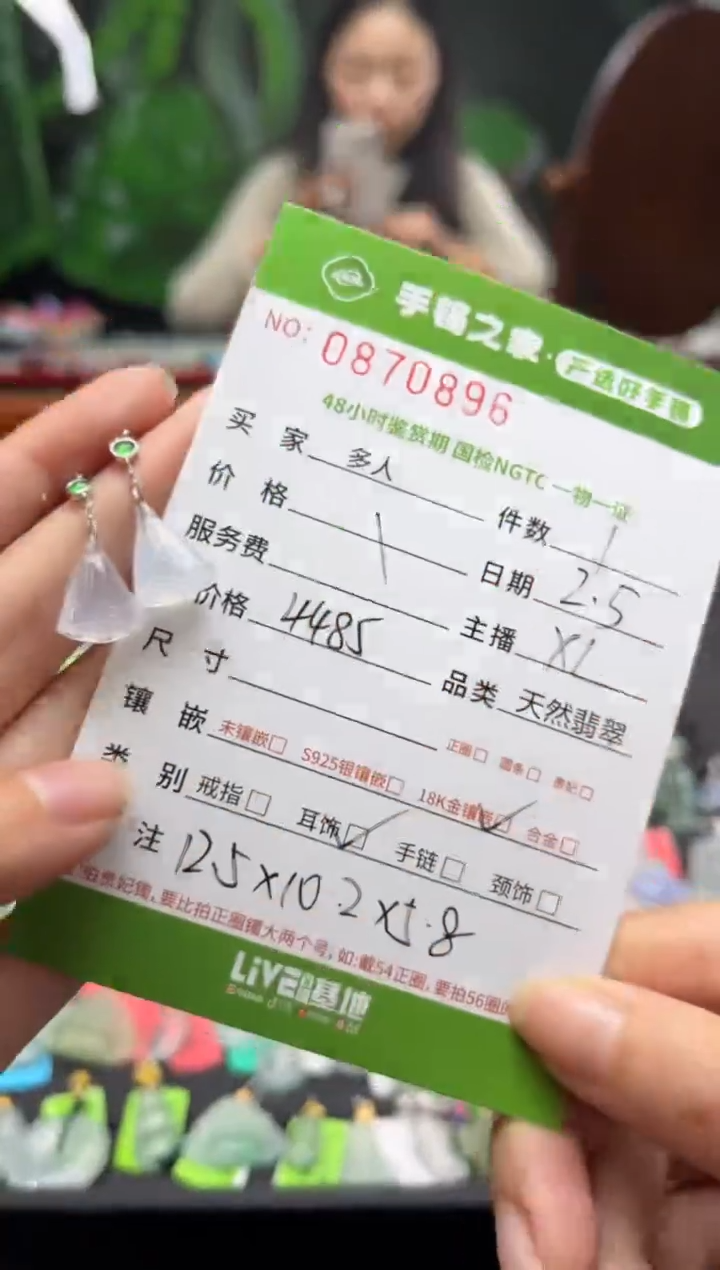 手镯之家·严选好手镯
NO: 0870896
48小时鉴赏期 国检NGTC 一物一证
买 家 多人 件数 1
价 格 日期 2.5
服务费 \ 主播 X1
价格 4485 品类 天然翡翠
尺 寸 正圈□ 圆条□ 贵妃□
镶 嵌 未镶嵌□ S925银镶嵌□ 18K金镶嵌☑ 合金□
类 别 戒指□ 耳饰☑ 手链□ 颈饰□
注 12.5×10.2×5.8
拍贵妃镯,要比拍正圈镯大两个号,如:戴54正圈,要拍56圈
LIVE 基地